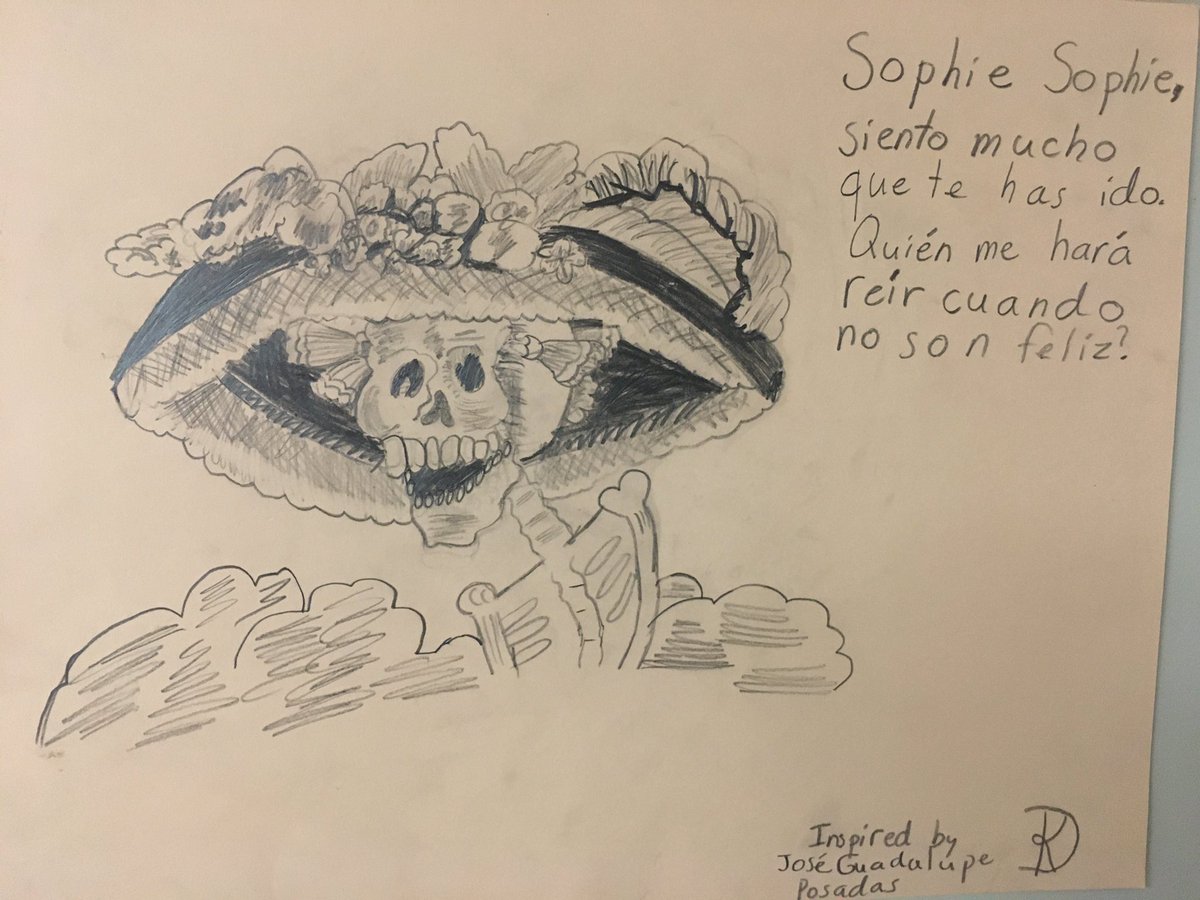 Sophie Sophie,
siento mucho
que te has ido.
Quién me hará
reír cuando
no son feliz?
Inspired by
José Guadalupe
Posadas